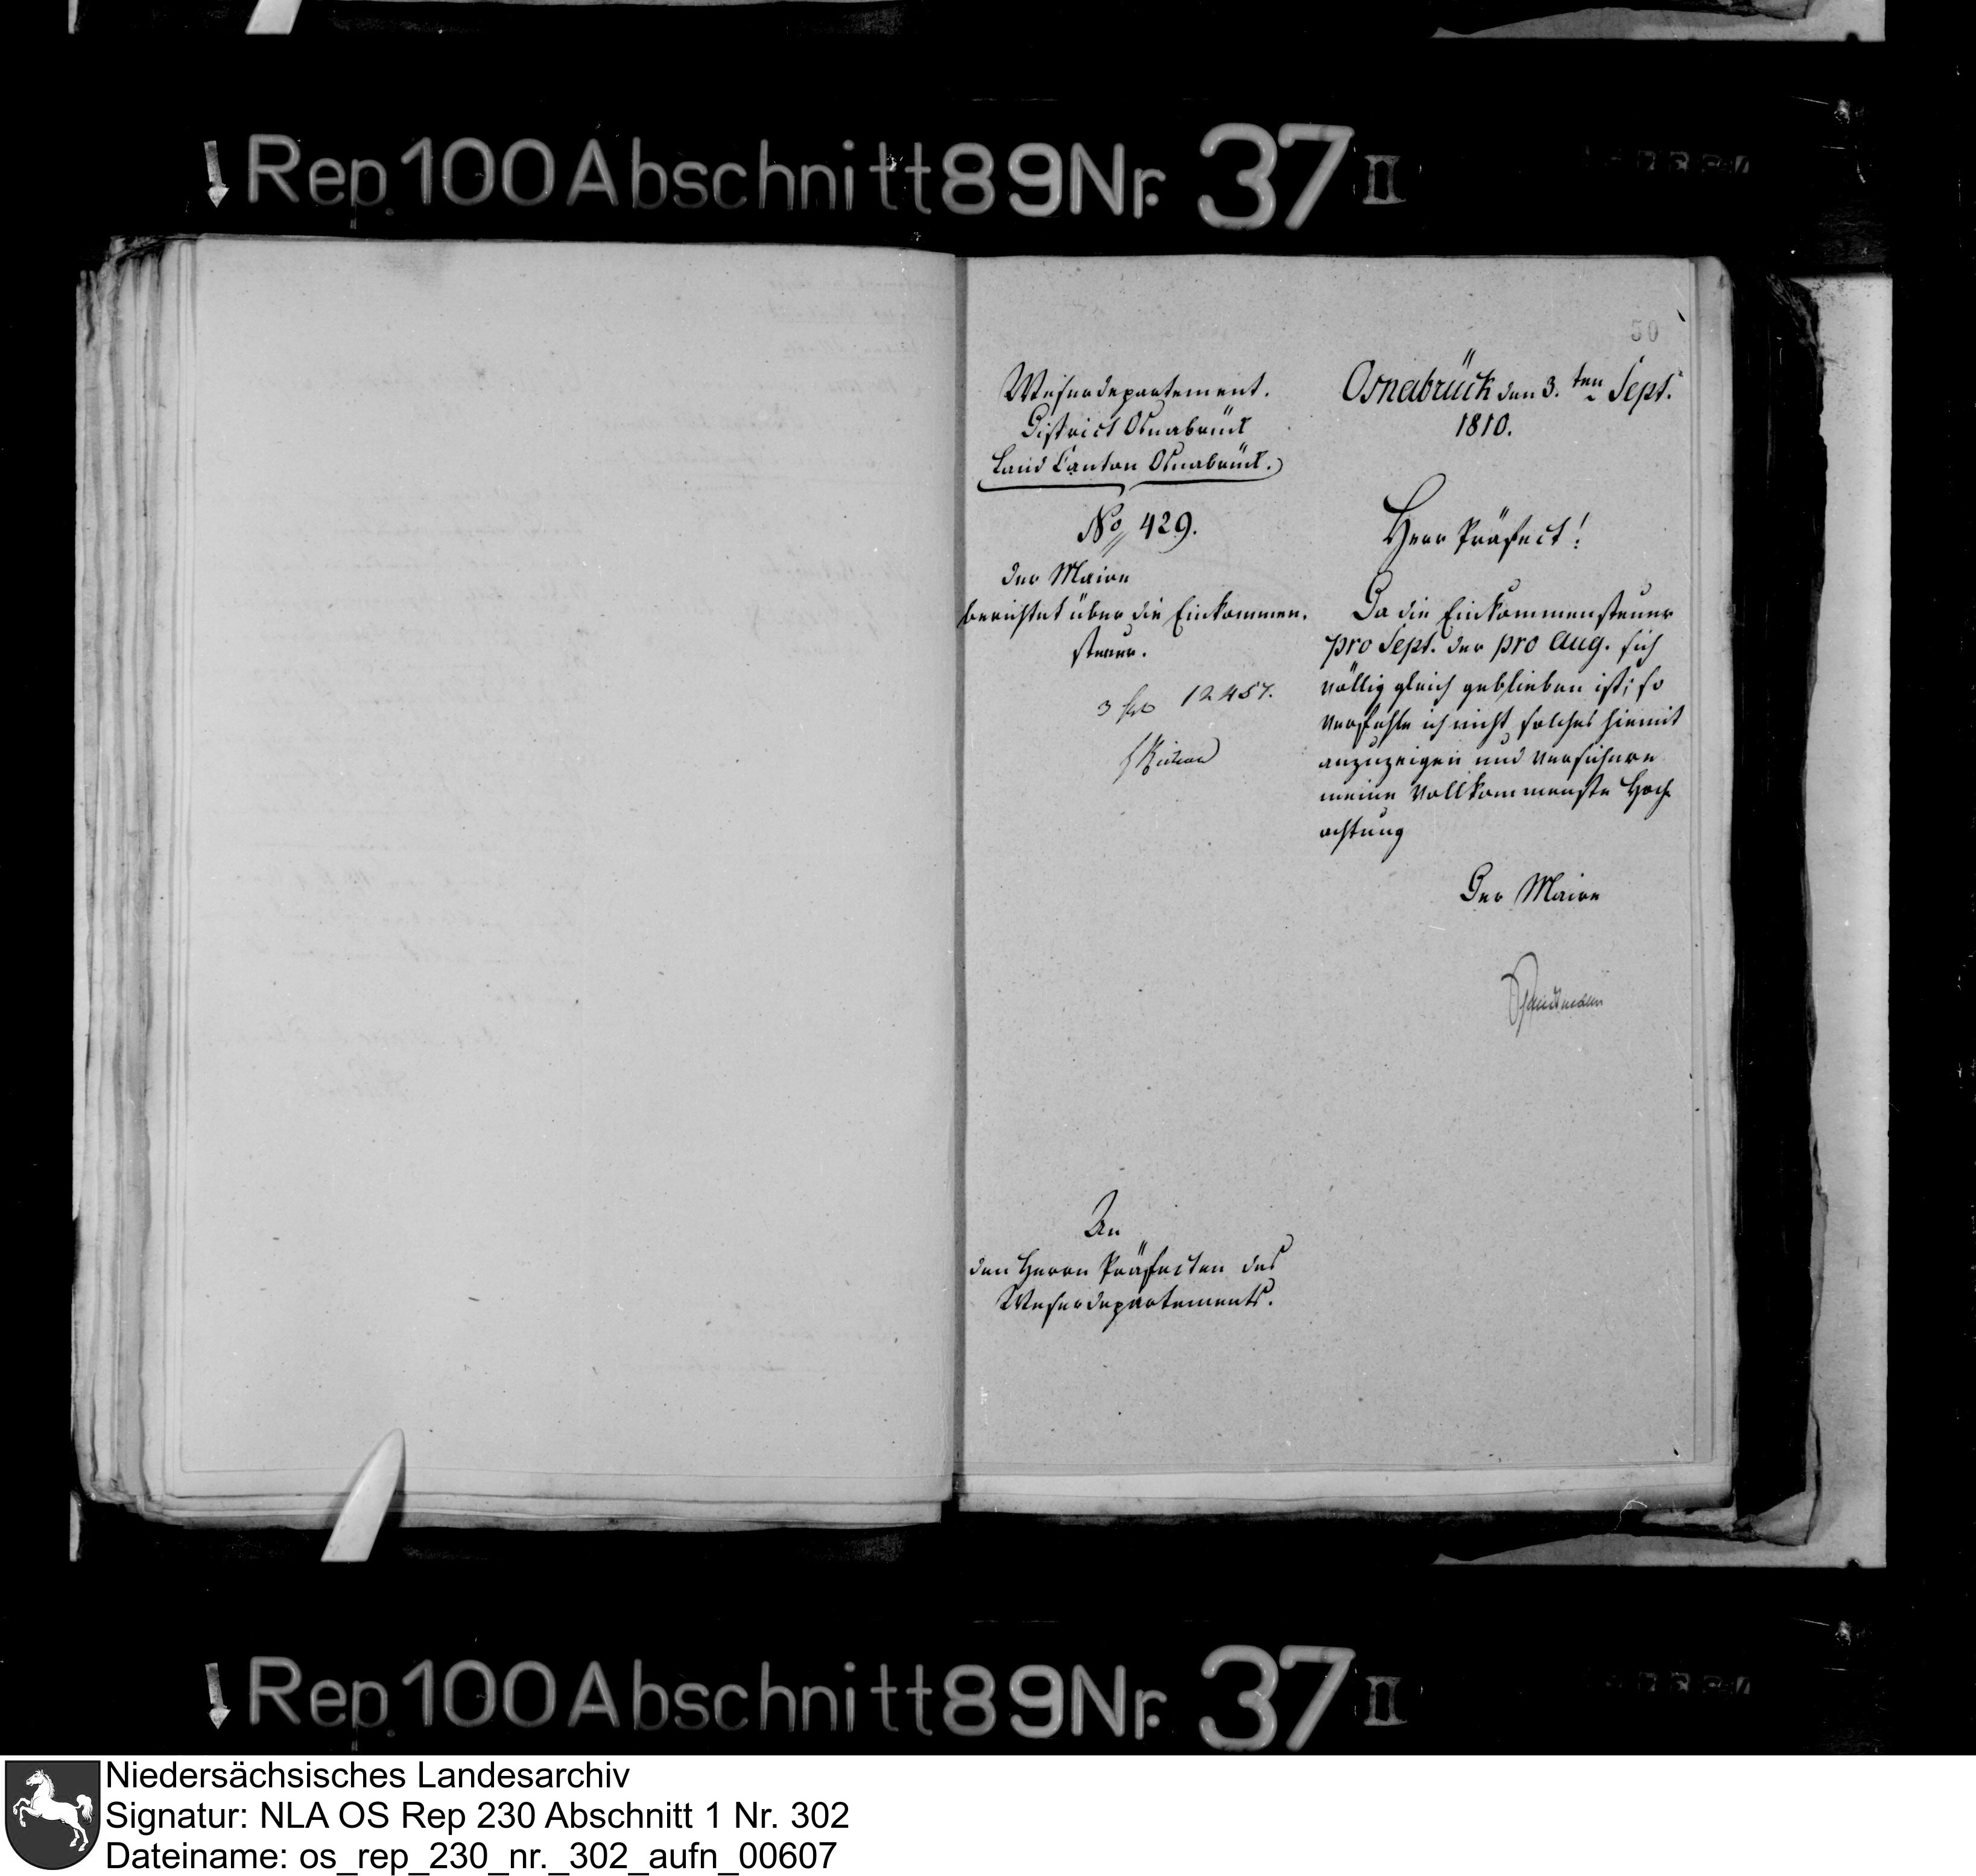 Rep. 100 Abschnitt 89 Nr. 37 II
50
Weserdepartement.
District Osnabrück
Land Canton Osnabrück.
No 429.
der Maire
berichtet über die Einkommen-
steuer.
12457.
Osnabrück den 3.ten Sept.
1810.
Herr Präfect!
Da die Einkommensteuer
pro Sept. der pro Aug. sich
völlig gleich geblieben ist; so
verfehle ich nicht solches hiemit
anzuzeigen und versichere
meine vollkommenste Hoch
achtung
Der Maire
An
den Herrn Präfecten des
Weserdepartements.
Rep. 100 Abschnitt 89 Nr. 37 II
Niedersächsisches Landesarchiv
Signatur: NLA OS Rep 230 Abschnitt 1 Nr. 302
Dateiname: os_rep_230_nr._302_aufn_00607